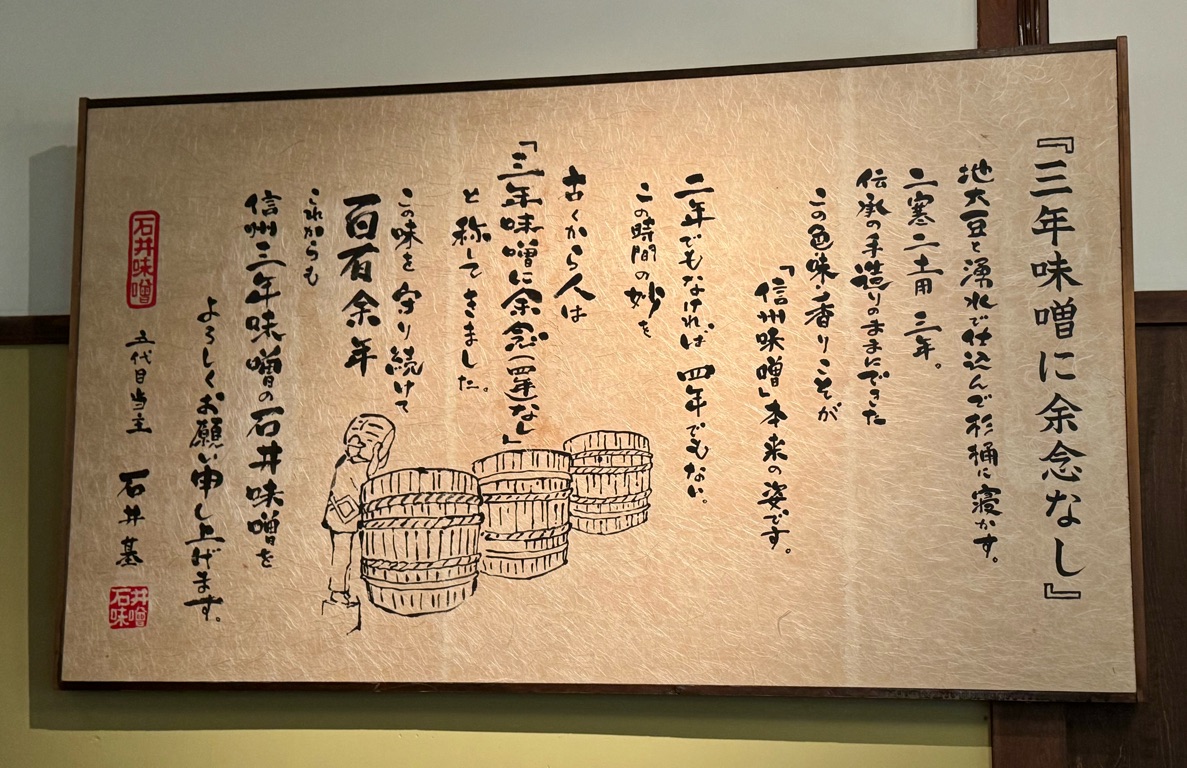 『三年味噌に余念なし』
地大豆と湧水で仕込んで杉桶に寝かす。
二寒二土用 三年。
伝承の手造りのままにできた
この色・味・香りこそが
「信州味噌」本来の姿です。
二年でもなければ 四年でもない。
この時間の妙を
古くから人は
「三年味噌に余念(四年)なし」
と称してきました。
この味を守り続けて
百有余年
これからも
信州三年味噌の石井味噌を
よろしくお願い申し上げます。
石井味噌
五代目当主 石井基
石井味噌